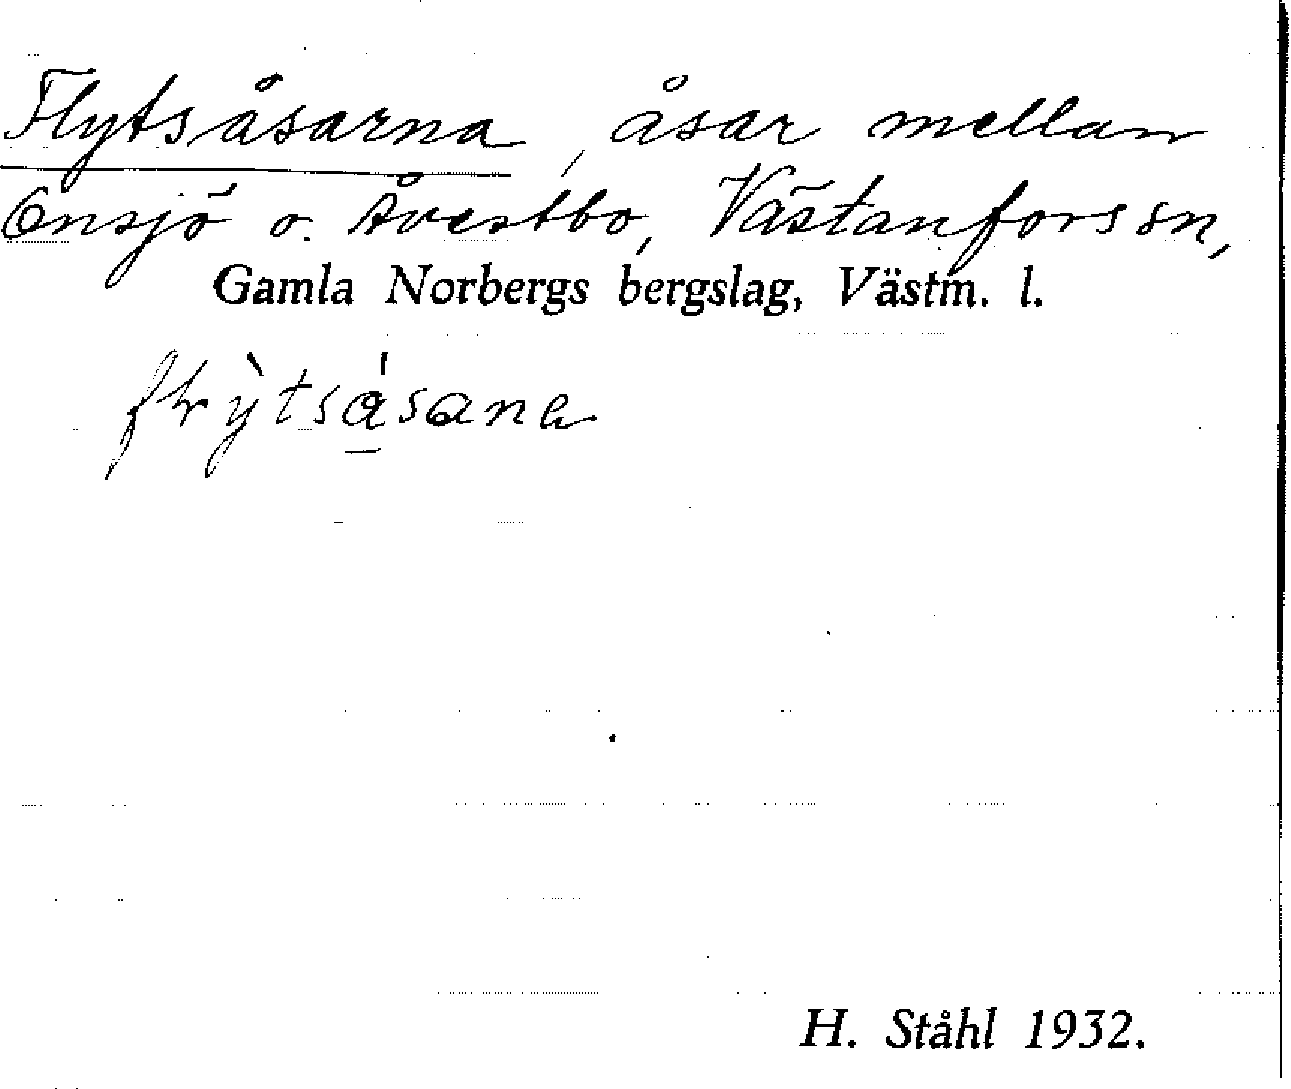 Flytsåsarna, åsar mellan
Ensjö o. Åvestbo, Västanfors sn,
Gamla Norbergs bergslag, Västm. l.
H. Ståhl 1932.